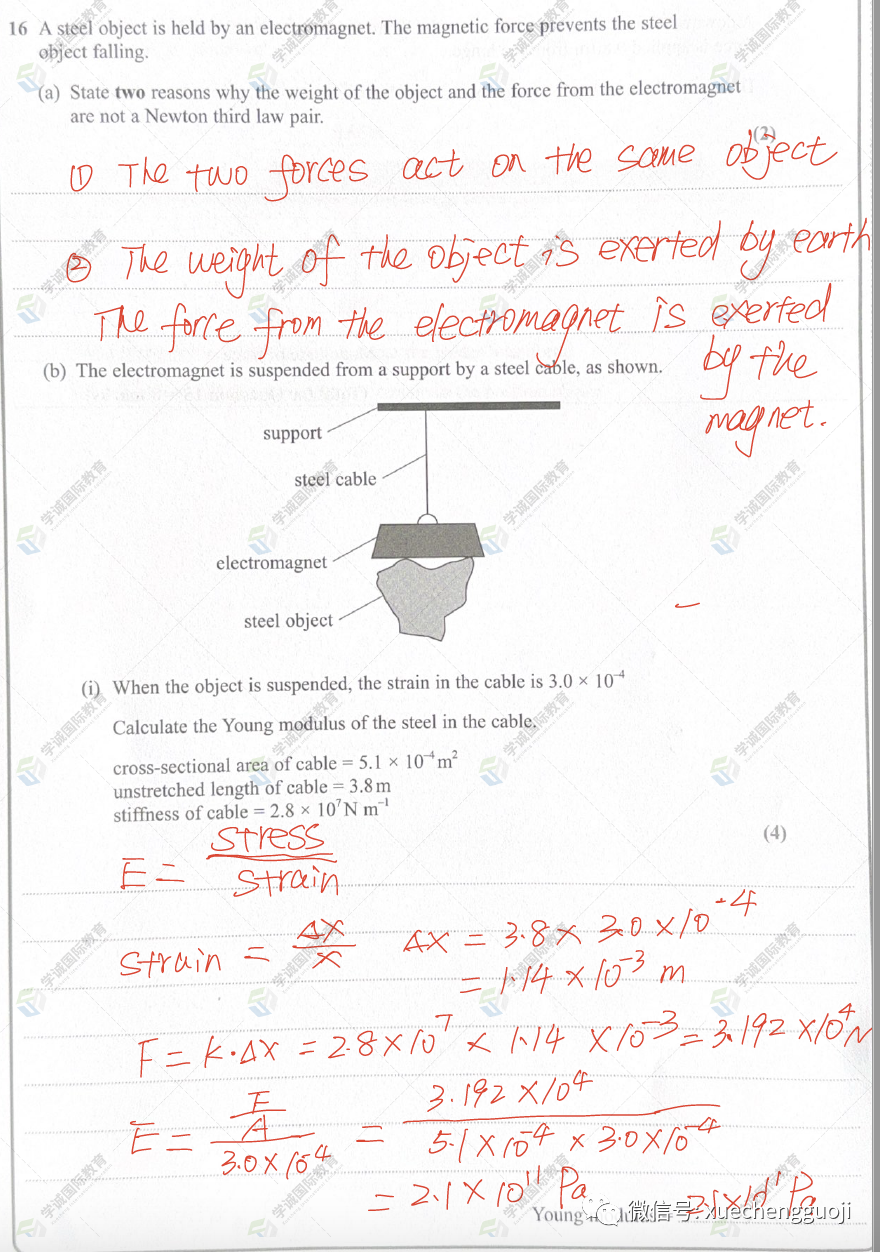 16 A steel object is held by an electromagnet. The magnetic force prevents the steel
object falling.
(a) State two reasons why the weight of the object and the force from the electromagnet
are not a Newton third law pair.
(2)
① The two forces act on the same object
② The weight of the object is exerted by earth
The force from the electromagnet is exerted
by the
magnet.
(b) The electromagnet is suspended from a support by a steel cable, as shown.
support
steel cable
electromagnet
steel object
(i) When the object is suspended, the strain in the cable is 3.0 × 10⁻⁴
Calculate the Young modulus of the steel in the cable.
cross-sectional area of cable = 5.1 × 10⁻⁴ m²
unstretched length of cable = 3.8 m
stiffness of cable = 2.8 × 10⁷ N m⁻¹
(4)
E = stress / strain
strain = Δx / x   Δx = 3.8 × 3.0 × 10⁻⁴
= 1.14 × 10⁻³ m
F = k·Δx = 2.8 × 10⁷ × 1.14 × 10⁻³ = 3.192 × 10⁴ N
E = (F / A) / (3.0 × 10⁻⁴) = 3.192 × 10⁴ / (5.1 × 10⁻⁴ × 3.0 × 10⁻⁴)
= 2.1 × 10¹¹ Pa
Young 2.1 × 10¹¹ Pa
微信号: xuechengguoji
学诚国际教育